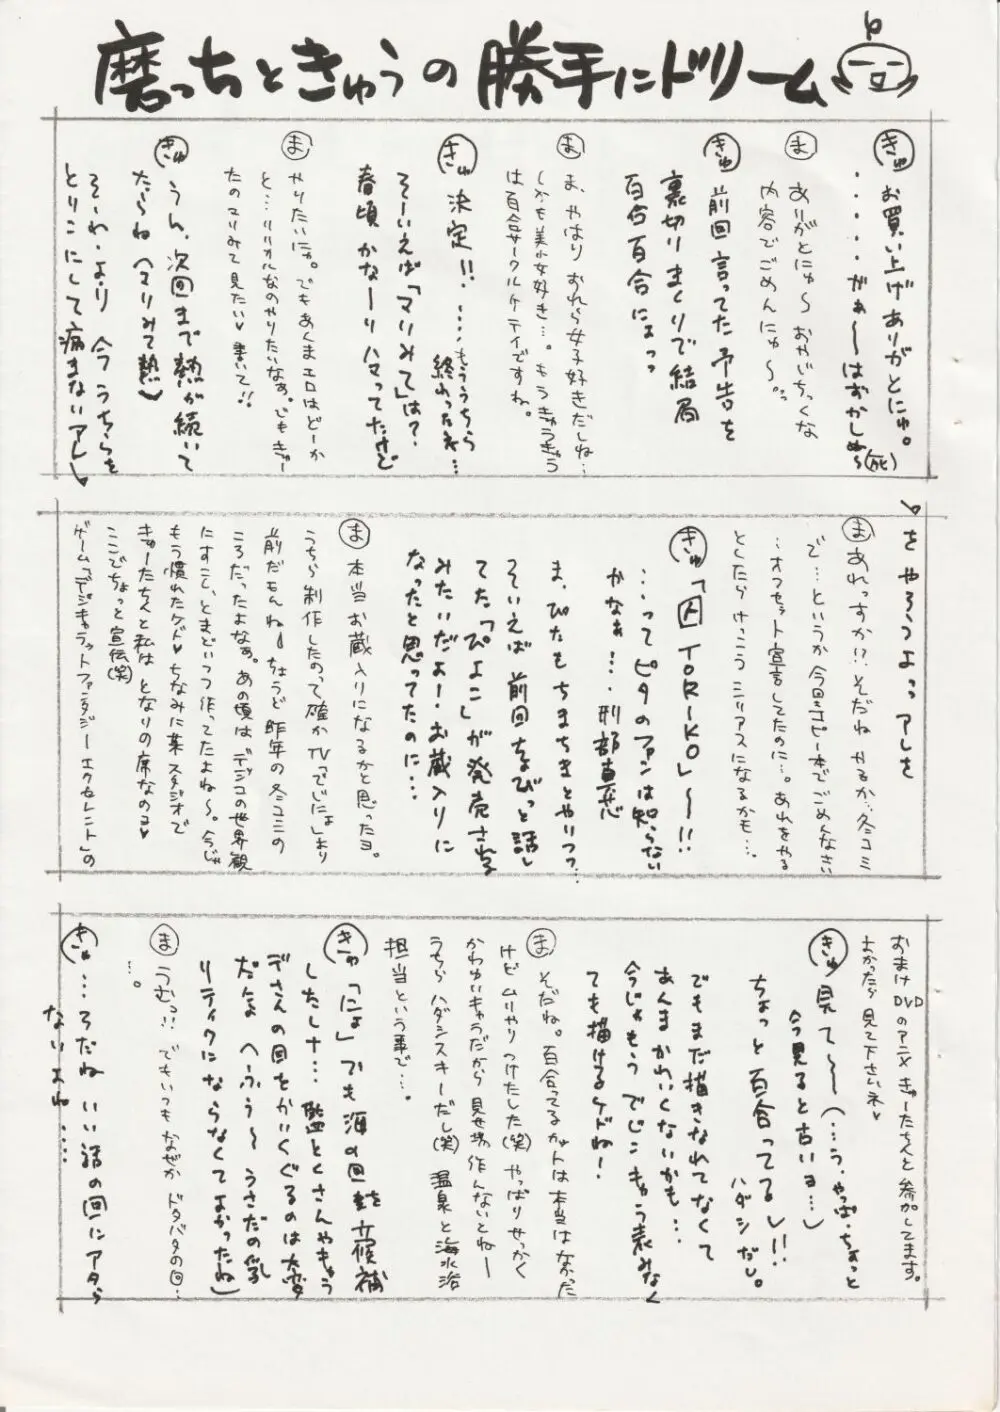 磨っちときゅうの勝手にドリーム
きゅ お買い上げありがとにゅ。
・・・・がぁ〜〜はずかしめ〜(死)
ま ありがとにゅ〜 おやじちっくな
内容でごめんにゅ〜。
きゅ 前回言ってた予告を
裏切りまくりで結局
百合百合にょっ
ま ま、やはり おれら女子好きだしね…
しかも美少女好き…。もうきゅうきゅう
は百合サークルケテイですね。
きゅ 決定!! ‥‥もううちら
終わったネ…
そーいえば「マリみて」は?
春頃かな〜りハマってたけど
ま やりたいにゅ。でもあくまエロはどーか
と…リリカルなのやりたいなぁ。でもきゅー
たのマリみて見たい♥書いて!!
きゅ うん、次回まで熱が続いて
たらね(マリみて熱)
そーれ・より 今うちらを
とりこにして痛まないアレ
をやろうよっアレを
ま あれっすか!?そだね やるか…冬コミ
で…というか今回コピー本でごめんなさい
…オフセット宣言してたのに…。あれをやる
としたらけっこうシリアスになるかも…。
きゅ 「囚 TORIKO」〜!!
…ってピタのファンは知らない
かなぁ…刑部真芯
ま、ぴたもちまちまとやりつつ…
そいえば前回ちょびっと話し
てた「ぴよこ」が発売される
みたいだよー・お蔵入りに
なったと思ってたのに…
ま 本当お蔵入りになるかと思ったヨ。
うちら制作したのって確かTV「でじにょ」より
前だもんね ちょうど昨年の冬コミの
ころだったよなぁ。あの頃はデジコの世界観
にすこし、とまどいつつ作ってたよね〜。今じゃ
もう慣れたケド♥ちなみに某スタジオで
きゅーたちんと私は となりの席なのよ♥
ここでちょっと宣伝(笑)
ゲーム「デジキャラットファンタジーエクセレント」の
おまけDVDのアニメ きゅーたちんと参加してます。
よかったら見て下さいネ♥
きゅ 見て〜〜(…う・やっぱ・ちょっと
今見ると古いョ…)
ちょっと百合ってるし!!
ハダシだし。
でもまだ描きなれてなくて
あんまかわいくないかも…
今じゃもうでじこキャラ表みなく
ても描けるケドね!
ま そだね。百合ってるカットは本当はなかった
けどムリやりつけたした(笑)やっぱりせっかく
かわゆいキャラだから見せ場作んないとねー
うちらハダシスキーだし(笑)温泉と海水浴
担当という事で…。
きゅ 「にょ」でも海の回を立候補
したしナ…監とくさんやキャラ
デさんの目をかいくぐるのは大変
だよ へふぅ〜うさだの乳
リティクにならなくてよかったね)
ま うむっ!!でもいつもなぜかドタバタの回…
…。
きゅ …そだね いい話の回にアタら
ないよね…‥